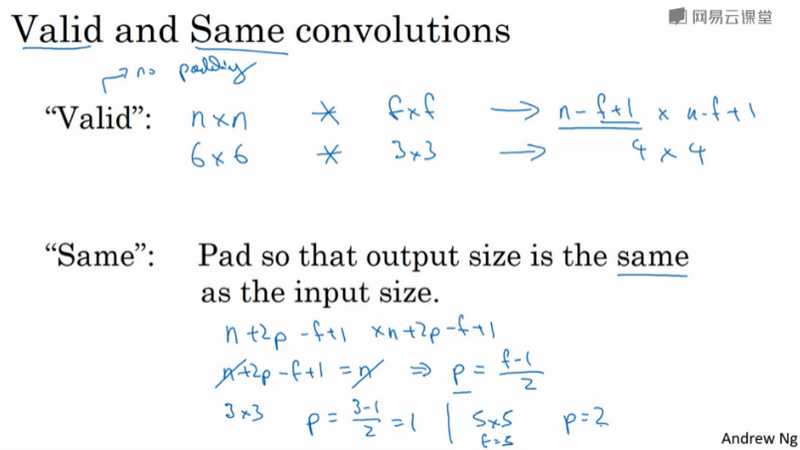 网易云课堂
Valid and Same convolutions
→ no padding
“Valid”: n×n * f×f → n-f+1 × n-f+1
6×6 * 3×3 → 4 × 4
“Same”: Pad so that output size is the same
as the input size.
n+2p-f+1 ×n+2p-f+1
n+2p-f+1 = n ⇒ p = f-1/2
3×3 p = 3-1/2 = 1 | 5×5 p=2
f=5
Andrew Ng